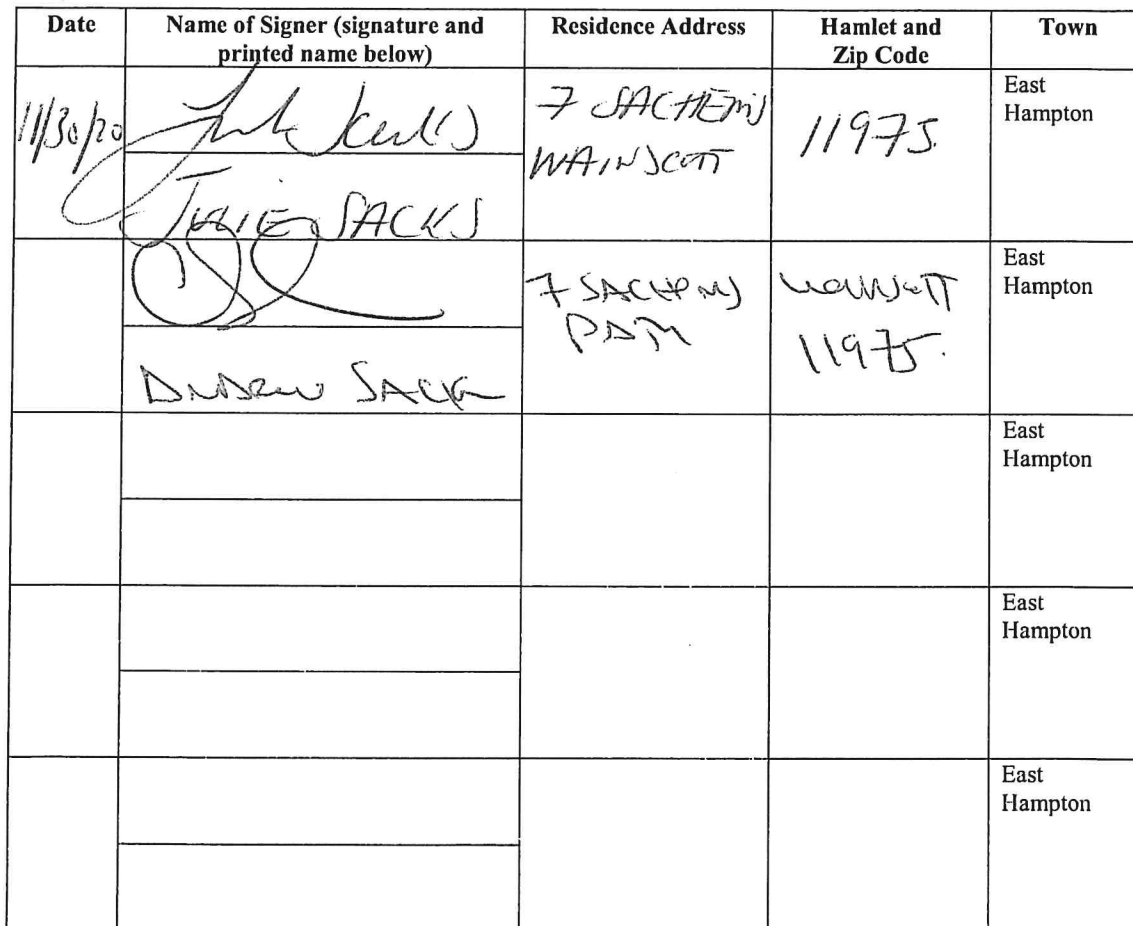 Date Name of Signer (signature and printed name below) Residence Address Hamlet and Zip Code Town
11/30/20
JULIE SACKS
7 SACHEMS
WAINSCOTT
11975.
East
Hampton
ANDREW SACKS
7 SACHEMS
PATH
WAINSCOTT
11975.
East
Hampton
East
Hampton
East
Hampton
East
Hampton